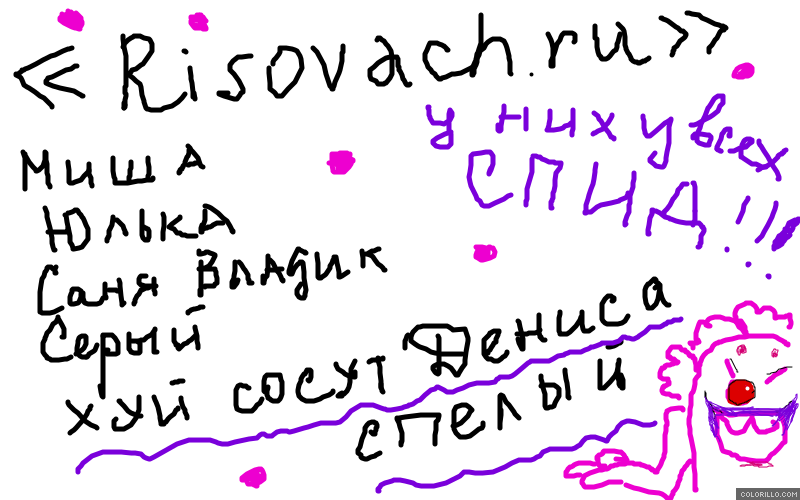 <<Risovach.ru>>
у них у всех
СПИД!!!
Миша
Юлька
Саня Владик
Серый
хуй сосут Дениса
спелый
COLORILLO.COM